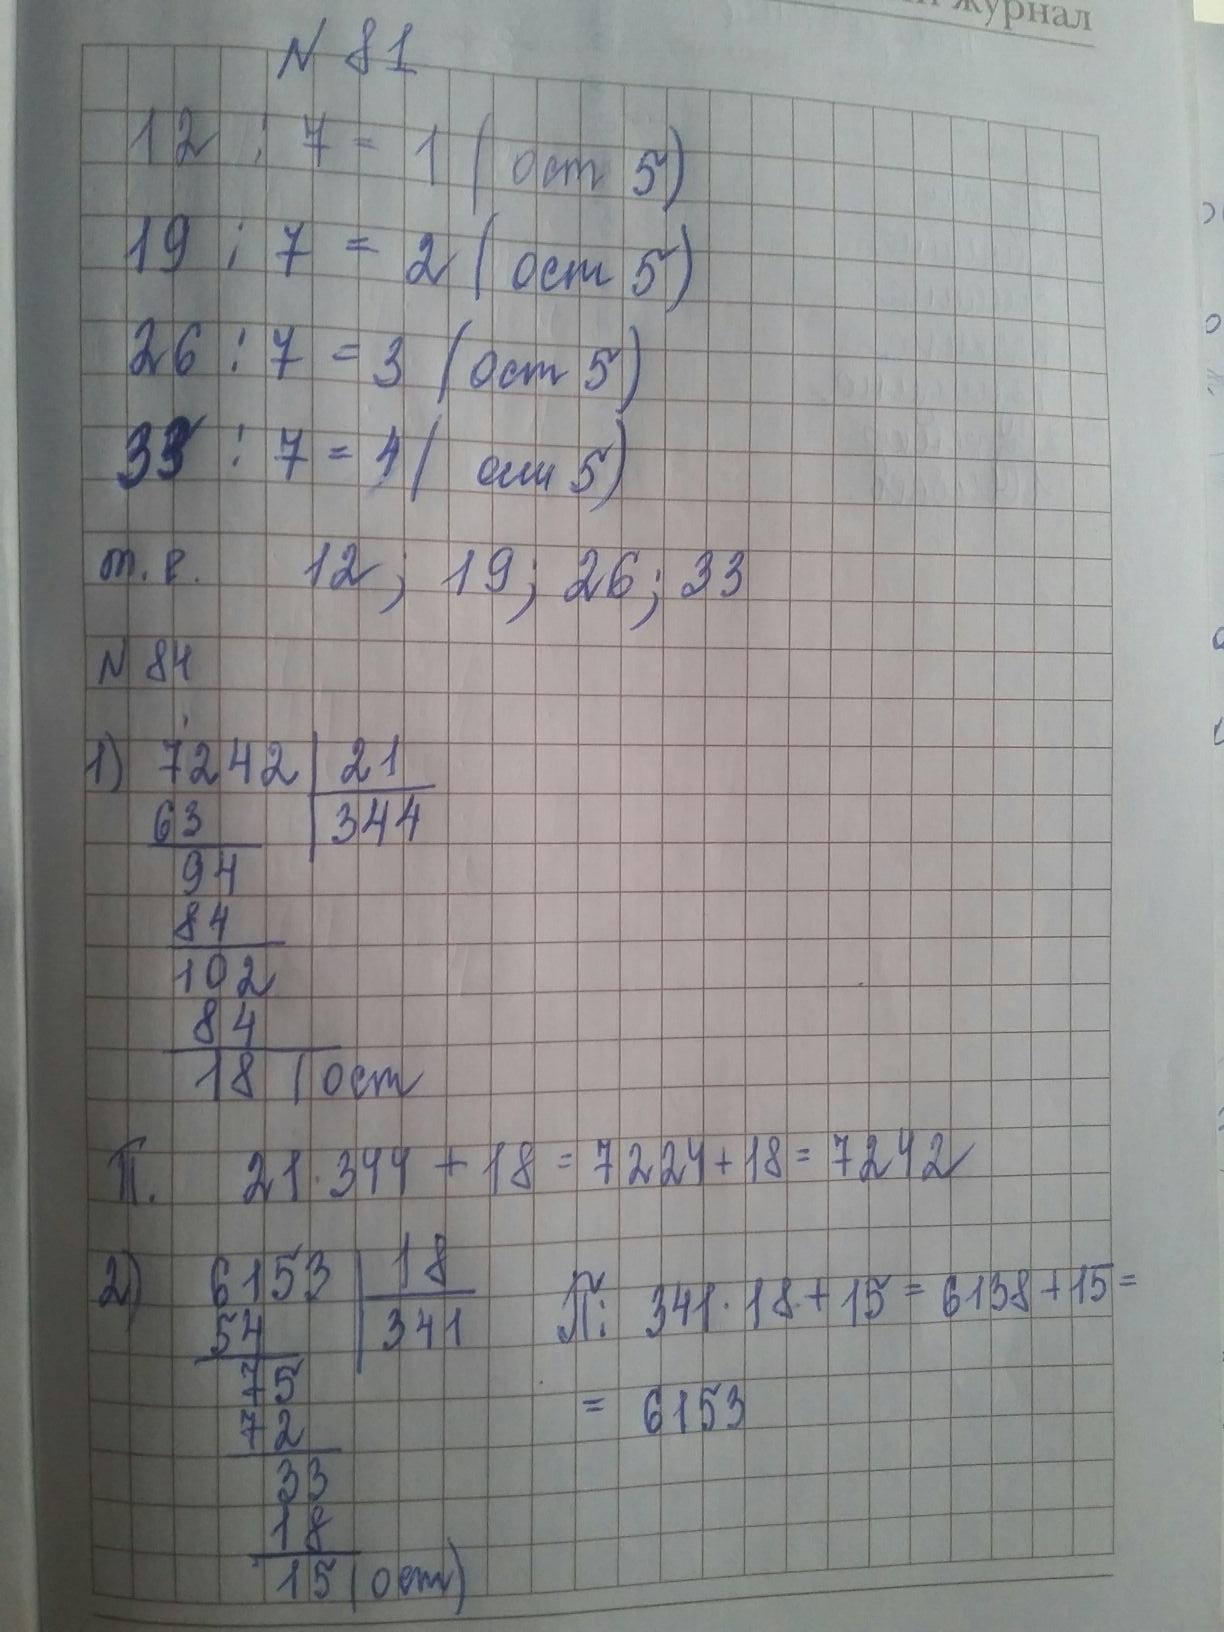 журнал
N 81
12 : 7 = 1 ( ост 5)
19 : 7 = 2 ( ост 5)
26 : 7 = 3 ( ост 5)
33 : 7 = 4 ( ост 5)
т. е. 12; 19; 26; 33
N 84
1) 7242 | 21
63 | 344
94
84
102
84
18 ( ост
П. 21 · 344 + 18 = 7224 + 18 = 7242
2) 6153 | 18
54 | 341
75
72
33
18
15 (ост)
П: 341 · 18 + 15 = 6138 + 15 =
= 6153